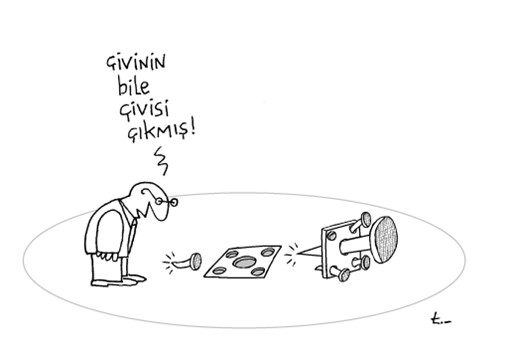 çivinin
bile
çivisi
çıkmış!
t.-